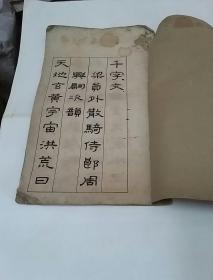 千字文
梁員外散騎侍郎周
興嗣次韻
天地玄黃宇宙洪荒日